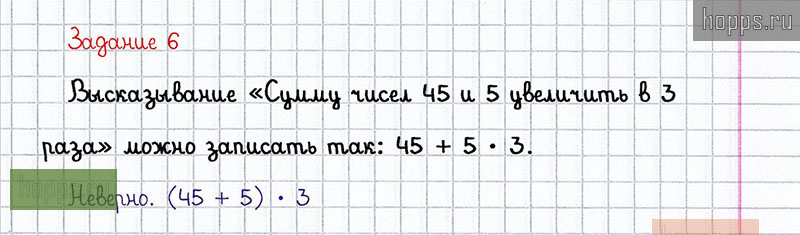 hopps.ru
Задание 6
Высказывание «Сумму чисел 45 и 5 увеличить в 3
раза» можно записать так: 45 + 5 · 3.
hopps.ru
Неверно. (45 + 5) · 3